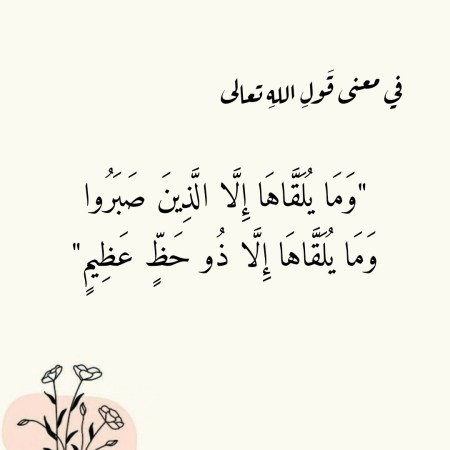 في معنى قَولِ اللهِ تعالى
"وَمَا يُلَقَّاهَا إِلَّا الَّذِينَ صَبَرُوا
وَمَا يُلَقَّاهَا إِلَّا ذُو حَظٍّ عَظِيمٍ"